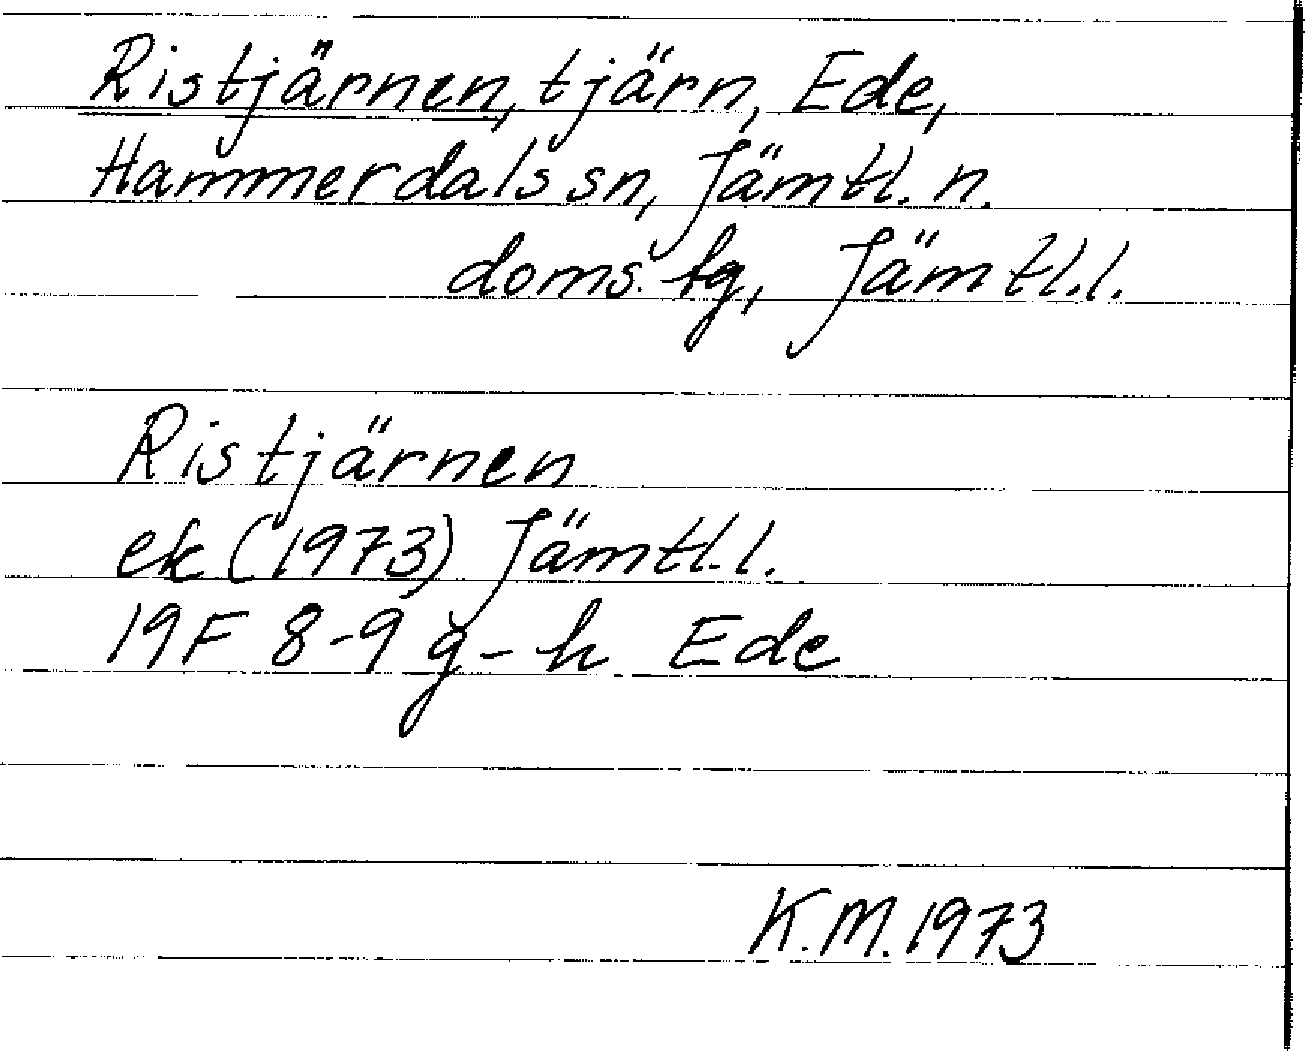 Ristjärnen, tjärn, Ede,
Hammerdals sn, Jämtl. n.
doms. tg, Jämtl.l.
Ristjärnen
ek (1973) Jämtl.l.
19F 8-9 g-h Ede
K.M. 1973